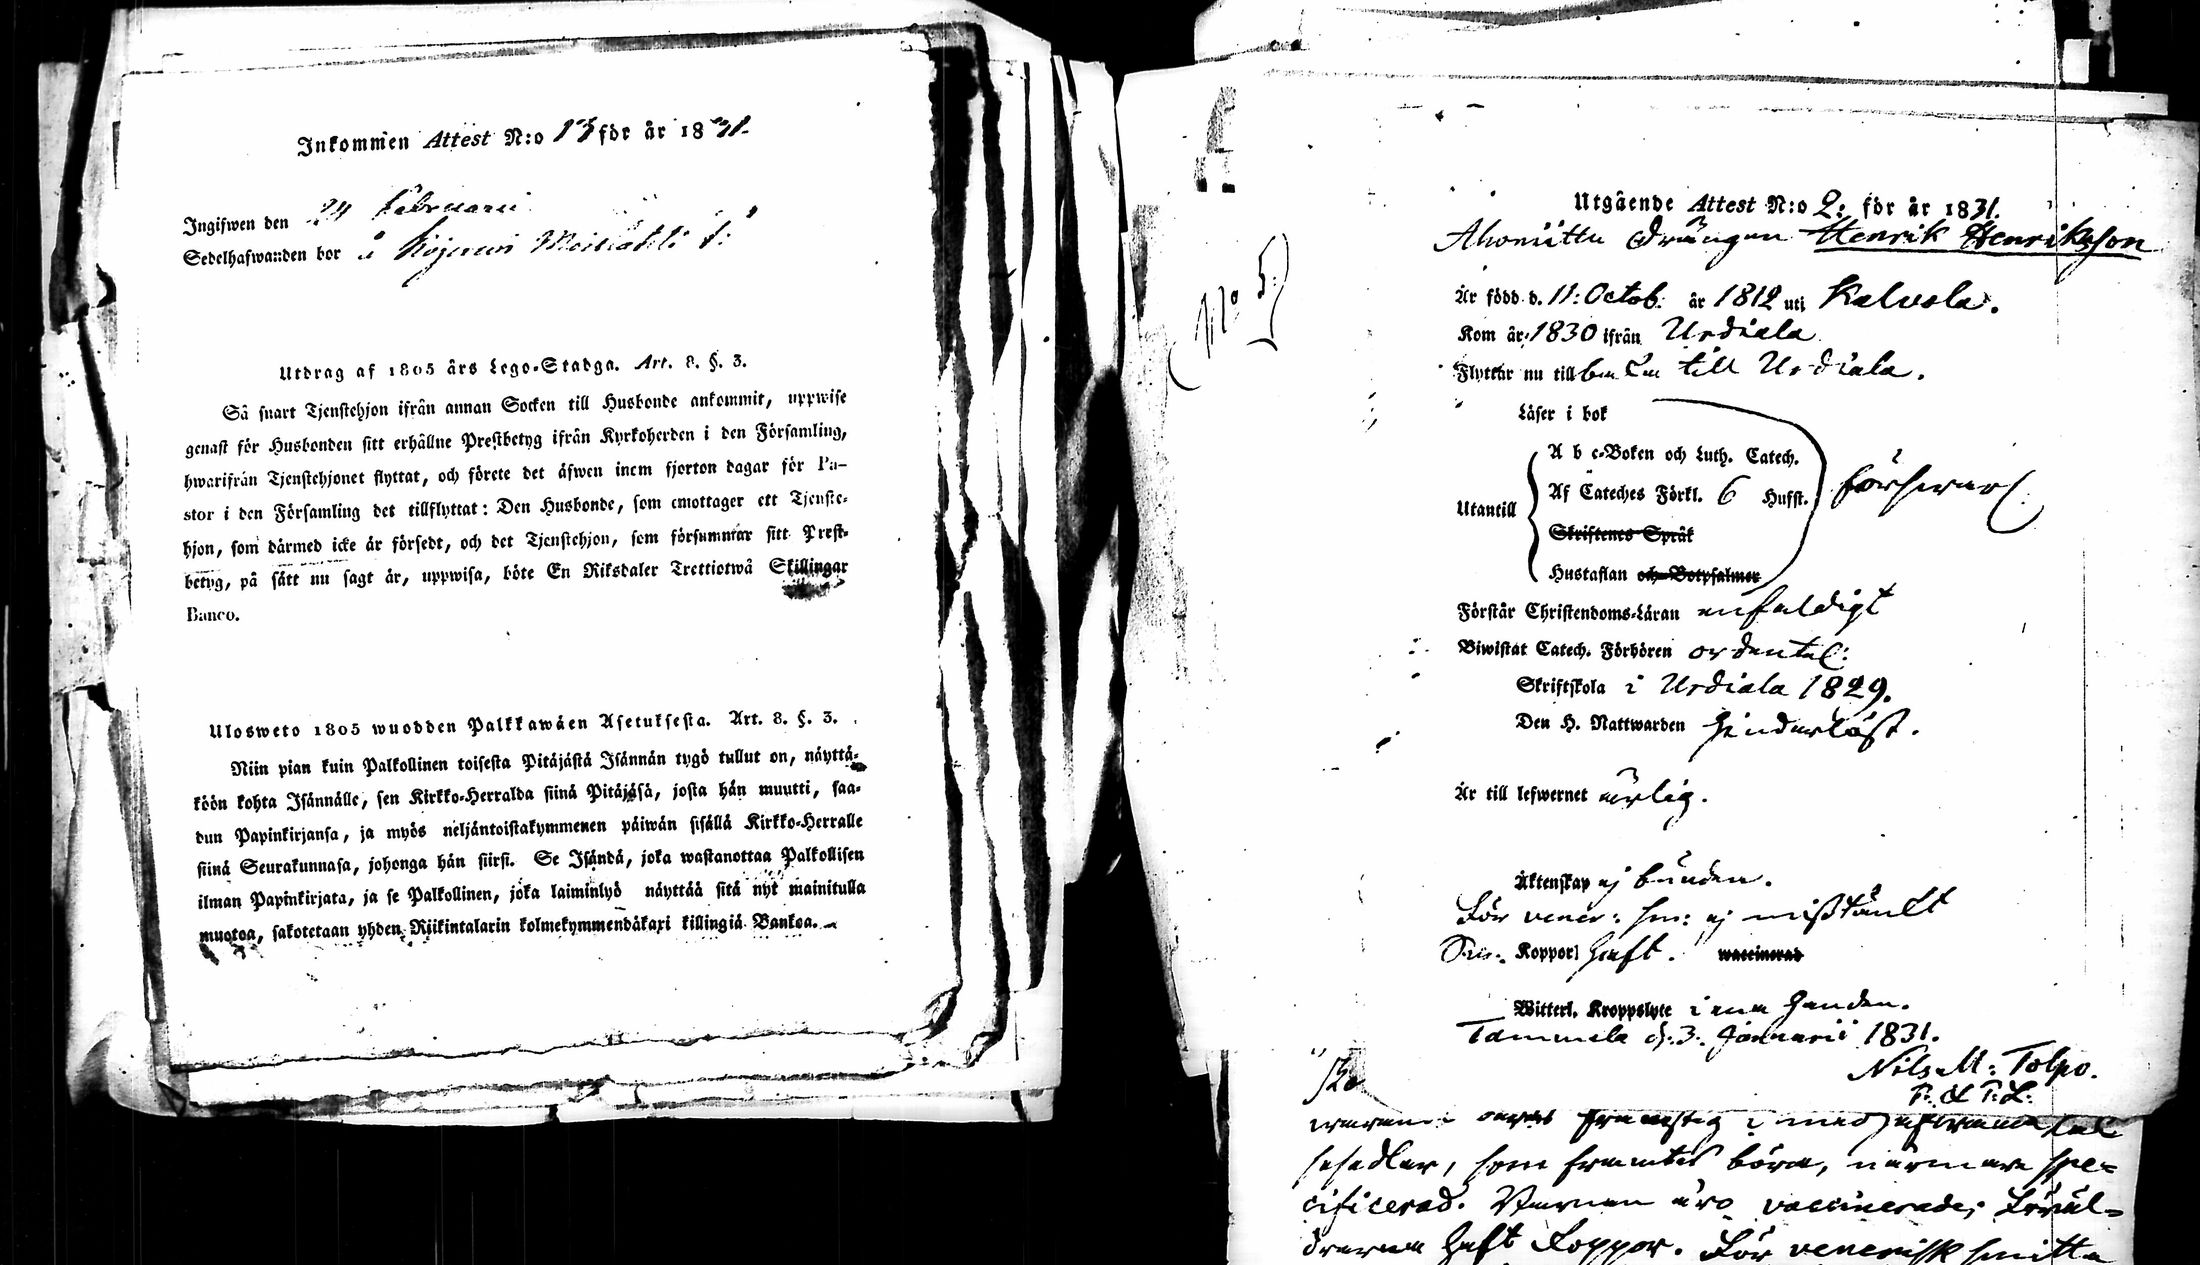 Inkommen Attest N:o 13 för år 1831.
Ingifwen den 24 Februarii
Sedelhafwanden bor å
Utdrag af 1805 års Lego-Stadga. Art. 8. §. 3.
Så snart Tjenstehjon ifrån annan Socken till Husbonde ankommit, uppwise
genast för Husbonden sitt erhållne Prestbetyg ifrån Kyrkoherden i den Församling,
hwarifrån Tjenstehjonet flyttat, och förete det äfwen inom fjorton dagar för Pa-
stor i den Församling det tillflyttat: Den Husbonde, som emottager ett Tjenste-
hjon, som därmed icke är försedt, och det Tjenstehjon, som försummar sitt Prest-
betyg, på sätt nu sagt är, uppwisa, böte En Riksdaler Trettiotwå Skillingar
Banco.
Ulosweto 1805 wuodden Palkkawäen Asetuksesta. Art. 8. §. 3.
Niin pian kuin Palkollinen toisesta Pitäjästä Isännän tygö tullut on, näyttä-
köön kohta Isännälle, sen Kirkko-Herralda siinä Pitäjäsä, josta hän muutti, saa-
dun Papinkirjansa, ja myös neljäntoistakymmenen päiwän sisällä Kirkko-Herralle
siinä Seurakunnasa, johonga hän siirsi. Se Isändä, joka wastanottaa Palkollisen
ilman Papinkirjata, ja se Palkollinen, joka laiminlyö näyttää sitä nyt mainitulla
muotoa, sakotetaan yhden Riikintalarin kolmekymmendäkaxi killingiä Bankoa.
No 5
Utgående Attest N:o 2: för år 1831.
Ahoniittu Drängen Henrik Henriksson
Är född d. 11: Octob: år 1812 uti Kalvola.
Kom år 1830 ifrån Urdiala
Flyttar nu till till Urdiala.
Läser i bok
A b c-Boken och Luth. Catech.
Utantill Af Cateches Förkl. 6 Hufst. försvarl.
Skriftenes Språk
Hustaflan och Botpsalmer
Förstår Christendoms-Läran enfaldigt
Biwistat Catech. Förhören ordentel:
Skriftskola i Urdiala 1829.
Den H. Nattwarden Hinderlöst.
Är till lefwernet ärlig.
Äktenskap ej bunden.
För vener: sm: ej misstänkt
Koppor haft. waccinerad
Witterl. Kroppslyte i ena handen.
Tammela d. 3. Januarii 1831.
Nils M: Tolpo.
P. & P. L.
som framtil böra, närmare spe-
cificerad. Barnen äro vaccinerade; Föräl-
drarna haft Koppor. För venerisk smitta